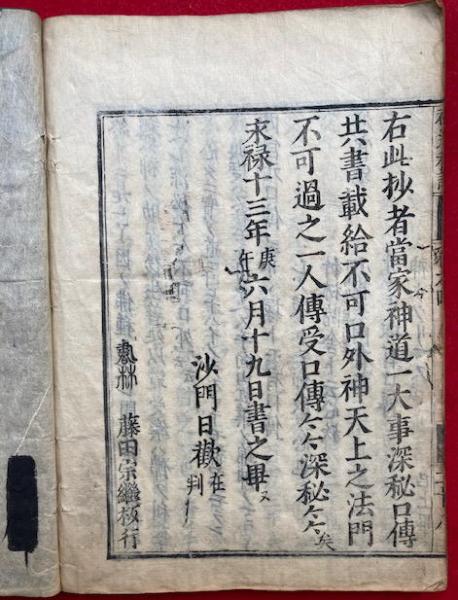 右此抄者當家神道一大事深秘口傳
共書載給不可口外神天上之法門
不可過之一人傳受口傳々々深秘々々矣
永禄十三年庚午六月十九日書之畢
沙門日歡在判
書林 藤田宗繼板行